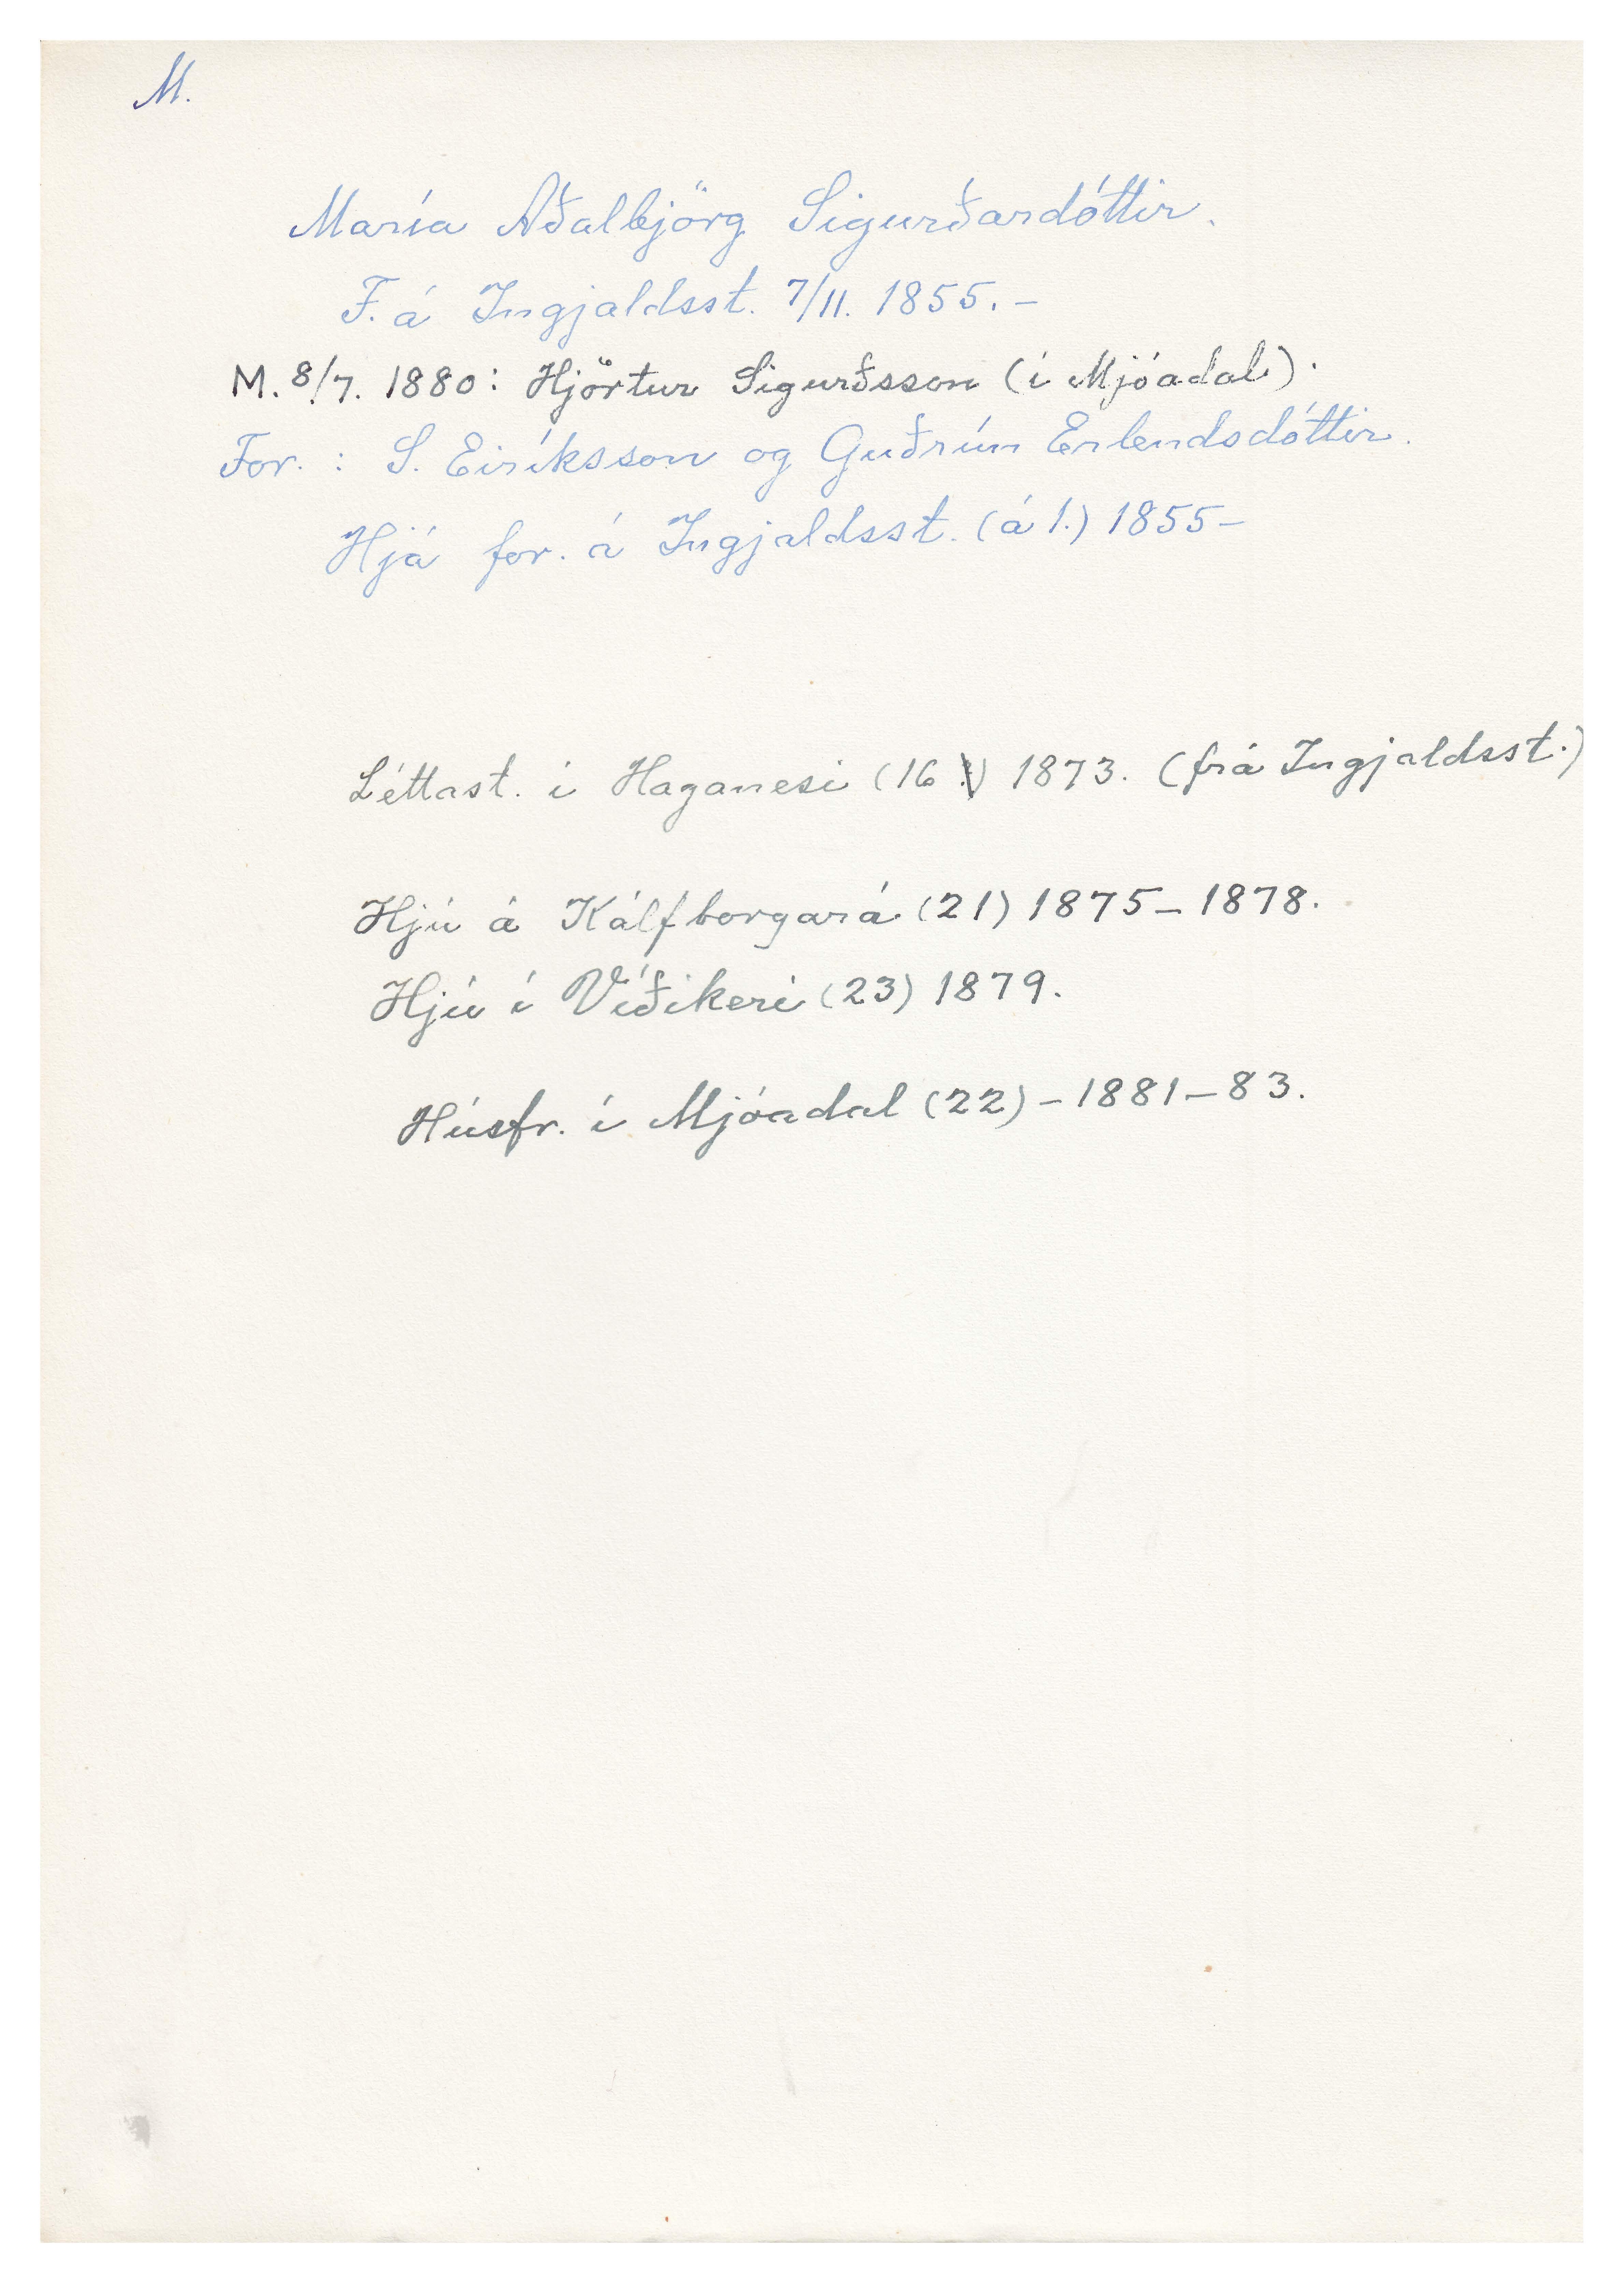 M.
María Aðalbjörg Sigurðardóttir.
F. á Ingjaldsst. 7/11. 1855. -
M. 8/7. 1880: Hjörtur Sigurðsson (í Mjóadal).
For. : S. Eiríksson og Guðrún Erlendsdóttir.
Hjá for. á Ingjaldsst. (á 1.) 1855-
Léttast. í Haganesi (16) 1873. (frá Ingjaldsst.)
Hjú á Kálfborgará (21) 1875-1878.
Hjú í Víðikeri (23) 1879.
Húsfr. í Mjóadal (22) - 1881-83.